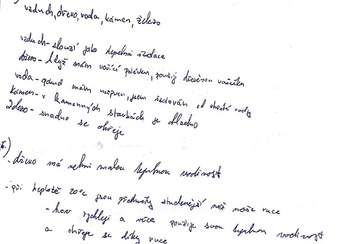 ) vzduch, dřevo, voda, kámen, železo
vzduch - slouží jako tepelná izolace
dřevo - když mám vařící polévku, použiji dřevěnou vařečku
voda - pokud mám neopren, jsem izolován od vody
kámen - v kamenných stavbách je chladno
železo - snadno se ohřeje
)
- dřevo má velmi malou tepelnou vodivost
- při teplotě 20°C jsou předměty studenější než naše ruce
- kov rychleji a více použije svou tepelnou vodivost
a ohřeje se díky ruce